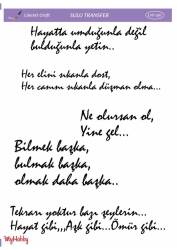 SULU TRANSFER
Hayatta umduğunla değil
bulduğunla yetin..
Her elini sıkanla dost,
Her canını sıkanla düşman olma...
Ne olursan ol,
Yine gel...
Bilmek başka,
bulmak başka,
olmak daha başka..
Tekrarı yoktur bazı şeylerin...
Hayat gibi,,,Aşk gibi...Ömür gibi...
MyHobby